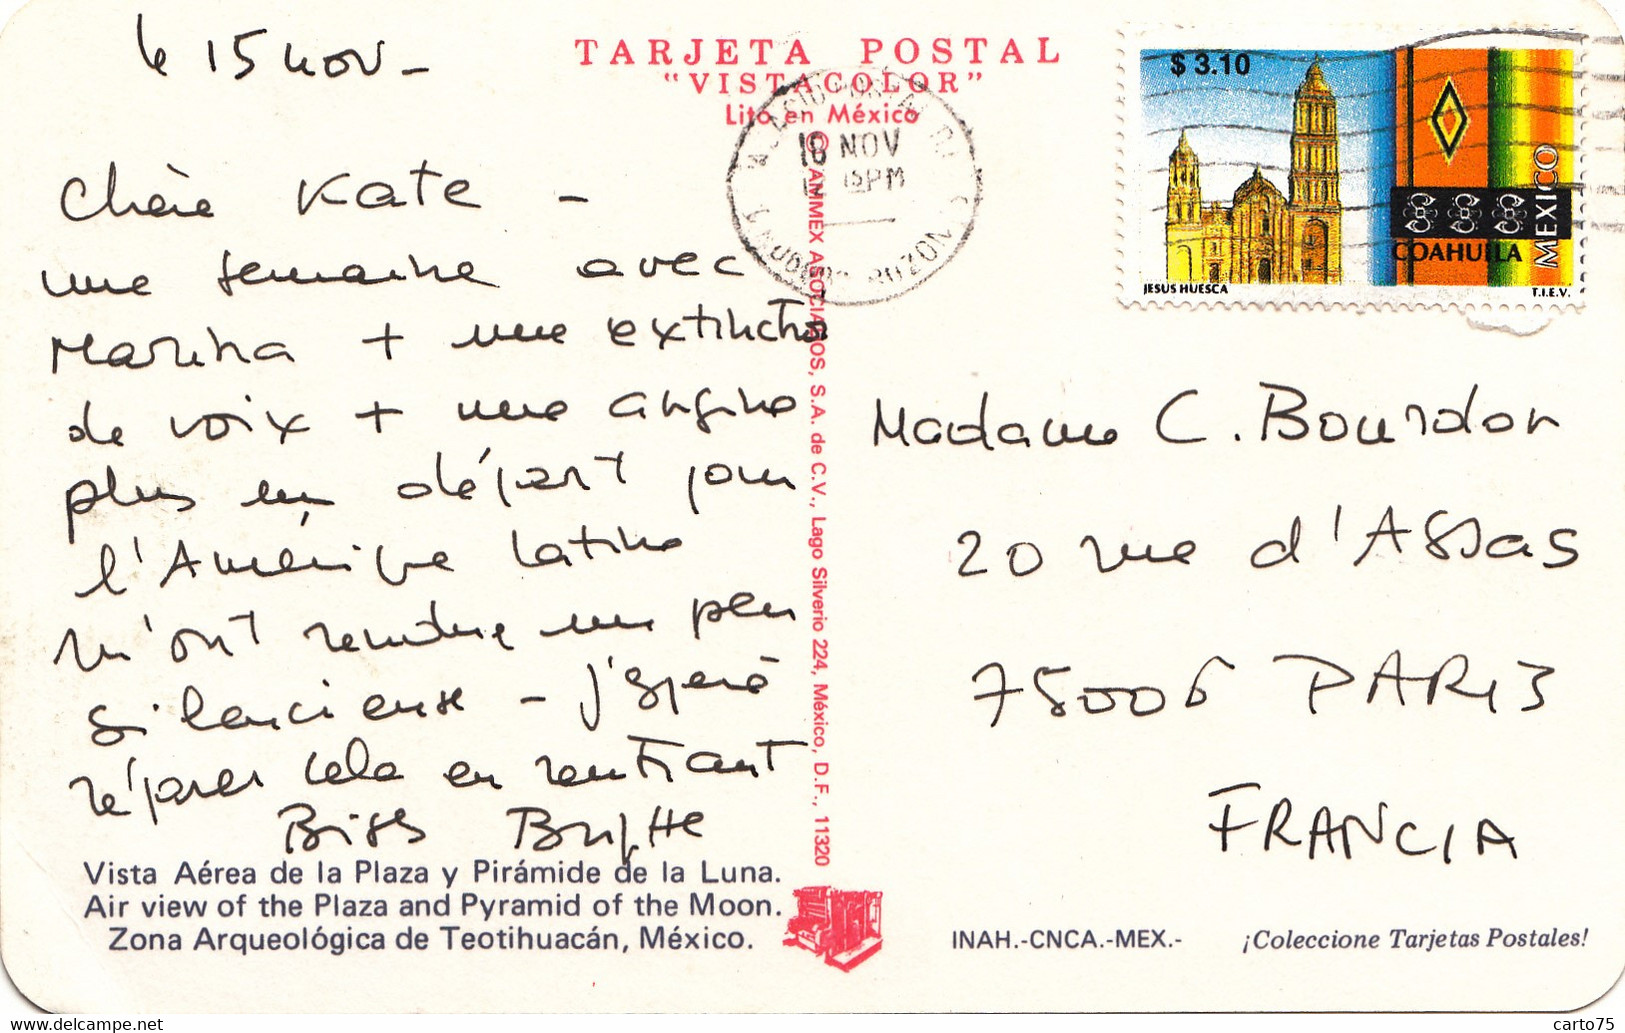 le 15 nov -
TARJETA POSTAL
"VISTACOLOR"
Lito en México
18 NOV
15PM
$ 3.10
MEXICO
COAHUILA
JESUS HUESCA
T.I.E.V.
Chère Kate -
une semaine avec
Marina + une extinction
de voix + une angine
plus un départ pour
l'Amérique Latine
m'ont rendue un peu
silencieuse - j'espère
réparer cela en rentrant
Bises Brigitte
AMMEX ASOCIADOS, S.A. de C.V., Lago Silverio 224, México, D.F., 11320
Madame C. Bourdon
20 rue d'Assas
75006 PARIS
FRANCIA
Vista Aérea de la Plaza y Pirámide de la Luna.
Air view of the Plaza and Pyramid of the Moon.
Zona Arqueológica de Teotihuacán, México.
INAH.-CNCA.-MEX.-
¡Coleccione Tarjetas Postales!
http://www.delcampe.net
carto75